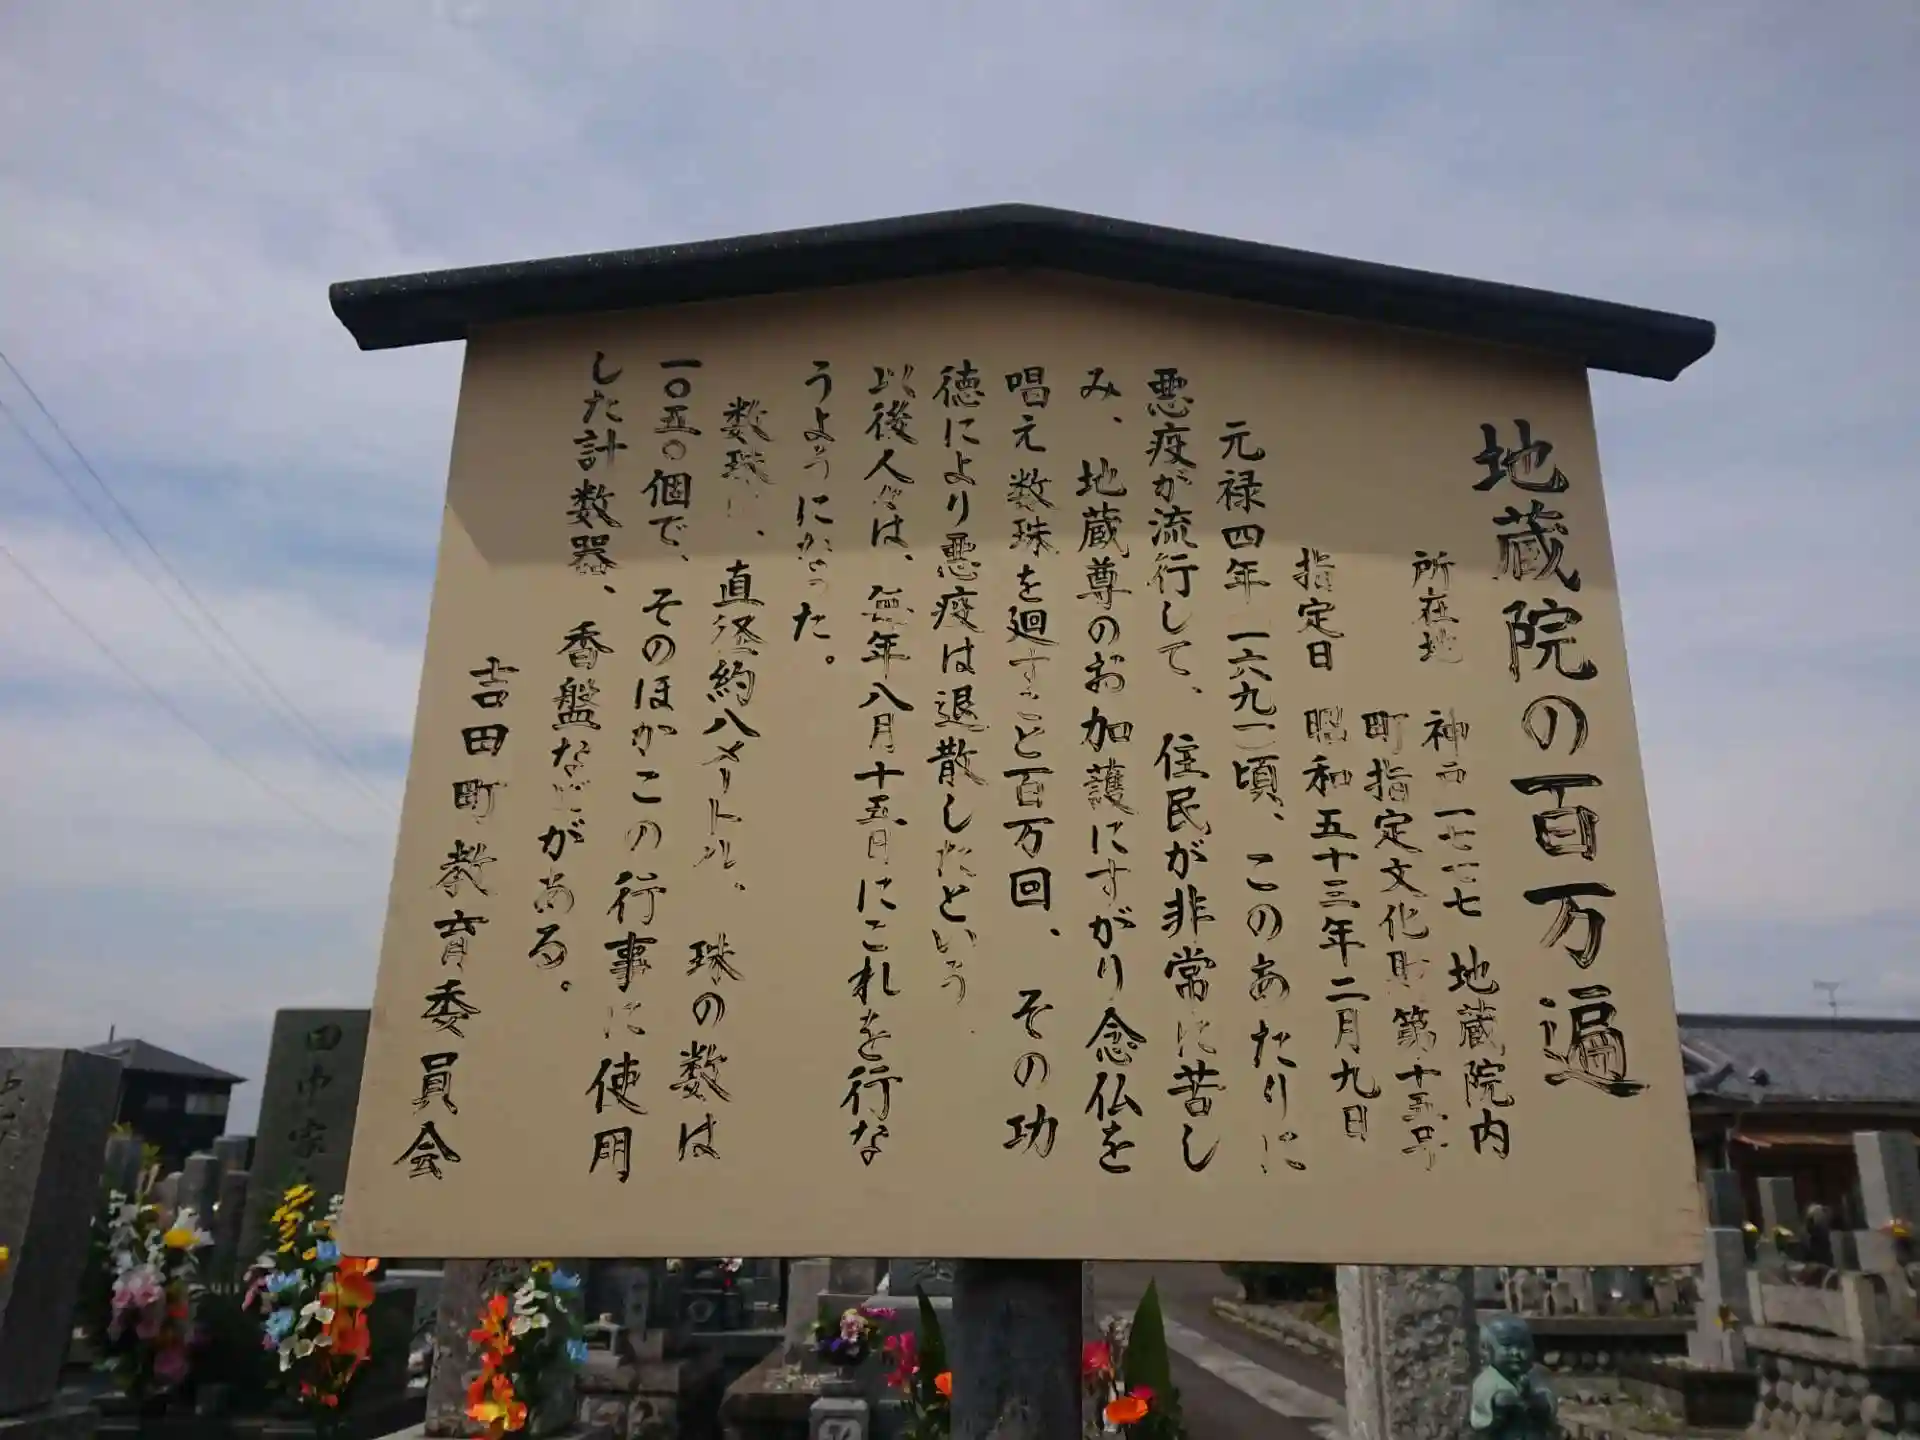 地蔵院の百万遍
所在地 神戸一七一七 地蔵院内
町指定文化財 第十五号
指定日 昭和五十三年二月九日
元禄四年(一六九一)頃、このあたりに
悪疫が流行して、住民が非常に苦し
み、地蔵尊のお加護にすがり念仏を
唱え数珠を廻すこと百万回、その功
徳により悪疫は退散したという。
以後人々は、毎年八月十五日にこれを行な
うようになった。
数珠は、直径約八メートル、珠の数は
一〇五〇個で、そのほかこの行事に使用
した計数器、香盤などがある。
吉田町教育委員会
田中家